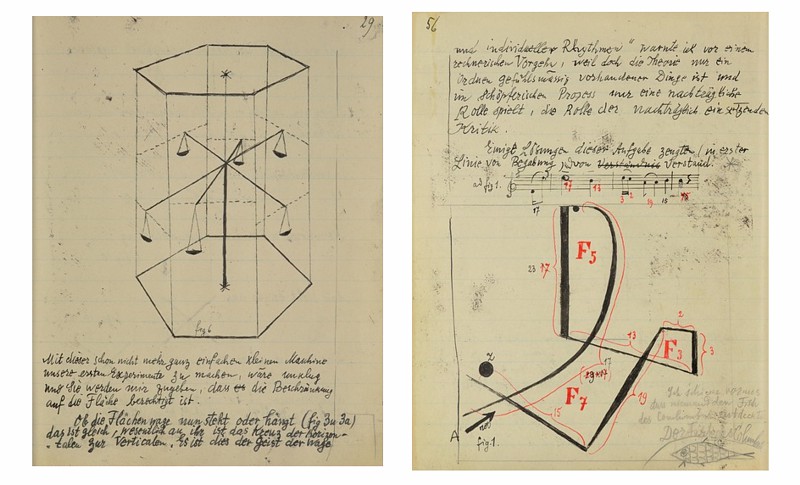 29
fig 6
Mit dieser schon nicht mehr ganz einfachen kleinen Maschine
unsere ersten Experimente zu machen, wäre unklug
und Sie werden mir zugeben, dass es die Beschränkung
auf die Fläche berechtigt ist.
Ob die Flächenwage nun steht oder hängt (fig 3 u 3a)
das ist gleich, wesentlich an ihr ist das Kreuz der Horizon-
talen zur Verticalen. Es ist dies der Geist der Wage
56
und individueller Rhythmen" warnte ich vor einem
rechnerischen Vorgehn, weil doch die Theorie nur ein
Ordnen gefühlsmässig vorhandener Dinge ist und
im schöpferischen Prozess nur eine nachträgliche
Rolle spielt, die Rolle der nachträglich einsetzenden
Kritik.
Einige Lösungen dieser Aufgabe zeugten in erster
Linie von Begabung, von Verständnis Verstand.
ad fig 1.
17 17 13 3 2 19 15 15
23 17 F5
2
13
F3 3
2
17
F7
15 19
A
fig 1.